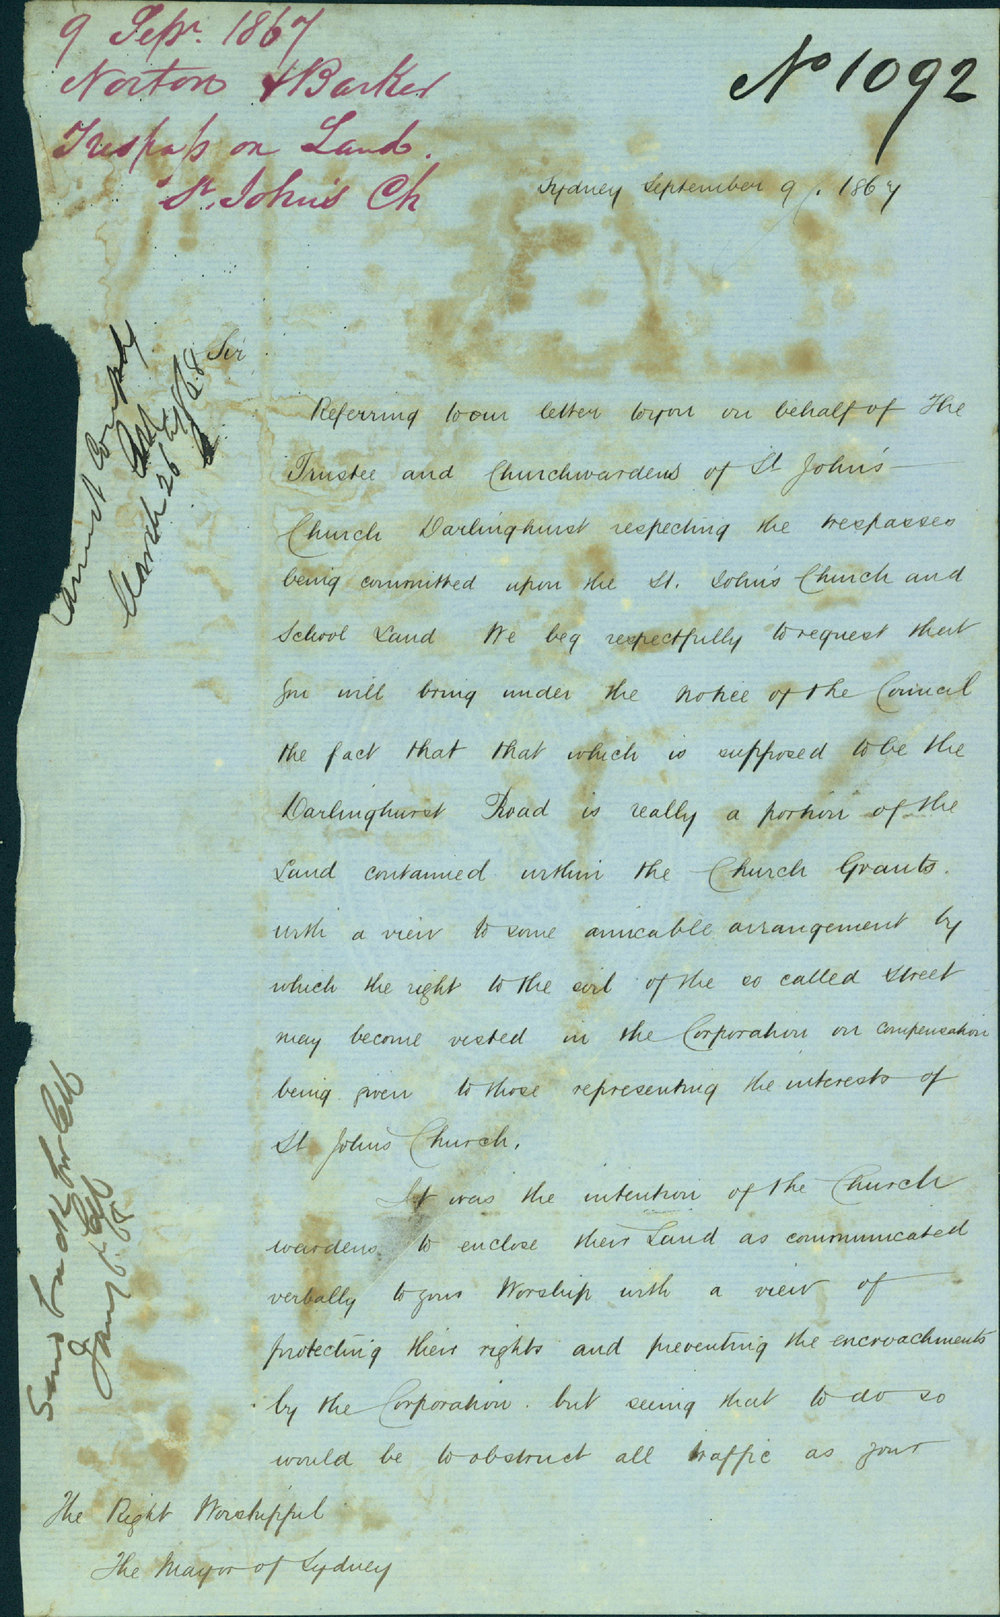 9 Sepr. 1867
Norton & Barker
Trespass on Land.
St. John's Ch
No 1092
Sydney September 9. 1867
Cannot Comply
March 26th/68
Sir
Referring to our letter to you on behalf of The
Trustee and Churchwardens of St John's
Church Darlinghurst respecting the trespasses
being committed upon the St. John's Church and
School Land We beg respectfully to request that
you will bring under the notice of the Council
the fact that that which is supposed to be the
Darlinghurst Road is really a portion of the
Land contained within the Church Grants.
with a view to some amicable arrangement by
which the right to the soil of the so called street
may become vested in the Corporation on compensation
being given to those representing the interests of
St Johns Church.
It was the intention of the Church
wardens to enclose their Land as communicated
verbally to your Worship with a view of
protecting their rights and preventing the encroachments
by the Corporation. but seeing that to do so
would be to obstruct all traffic as your
Send back
The Right Worshipful
The Mayor of Sydney